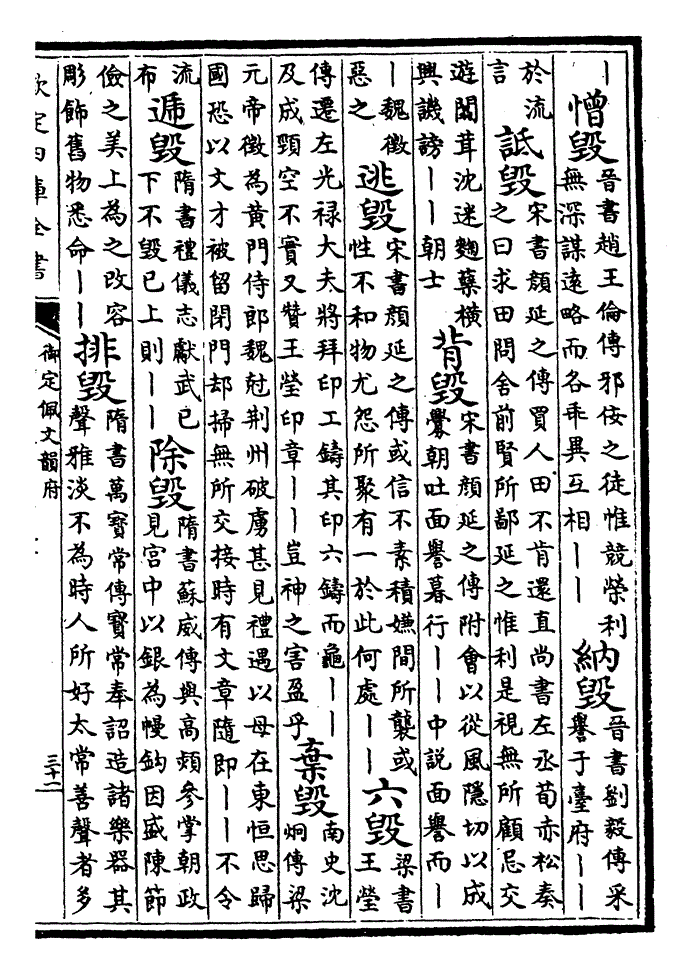 丨憎毁晉書趙王倫傳邪佞之徒惟競榮利無深謀遠略而各乖異互相丨丨納毁晉書劉毅傳采譽于臺府丨丨
於流言詆毁宋書顔延之傳買人田不肯還直尚書左丞荀赤松奏之曰求田問舍前賢所鄙延之惟利是視無所顧忌交
遊闒茸沈迷麴蘖橫興譏謗丨丨朝士背毁宋書顔延之傳附會以從風隱切以成釁朝吐面譽暮行丨丨中説面譽而丨
丨魏徴惡之逃毁宋書顔延之傳或信不素積嫌間所襲或性不和物尤怨所聚有一於此何處丨丨六毁梁書王瑩
傳遷左光禄大夫將拜印工鑄其印六鑄而龜丨丨及成頸空不實又贊王瑩印章丨丨豈神之害盈乎棄毁南史沈炯傳梁
元帝徵為黃門侍郎魏尅荆州破虜甚見禮遇以母在東恒思歸國恐以文才被留閉門却掃無所交接時有文章隨即丨丨不令
流布遞毁隋書禮儀志獻武已下不毁已上則丨丨除毁隋書蘇威傳與高熲參掌朝政見宫中以銀為幔鈎因盛陳節
儉之美上為之改容彫飾舊物悉命丨丨排毁隋書萬寶常傳寶常奉詔造諸樂器其聲雅淡不為時人所好太常善聲者多
欽定四庫全書
御定佩文韻府
三十二